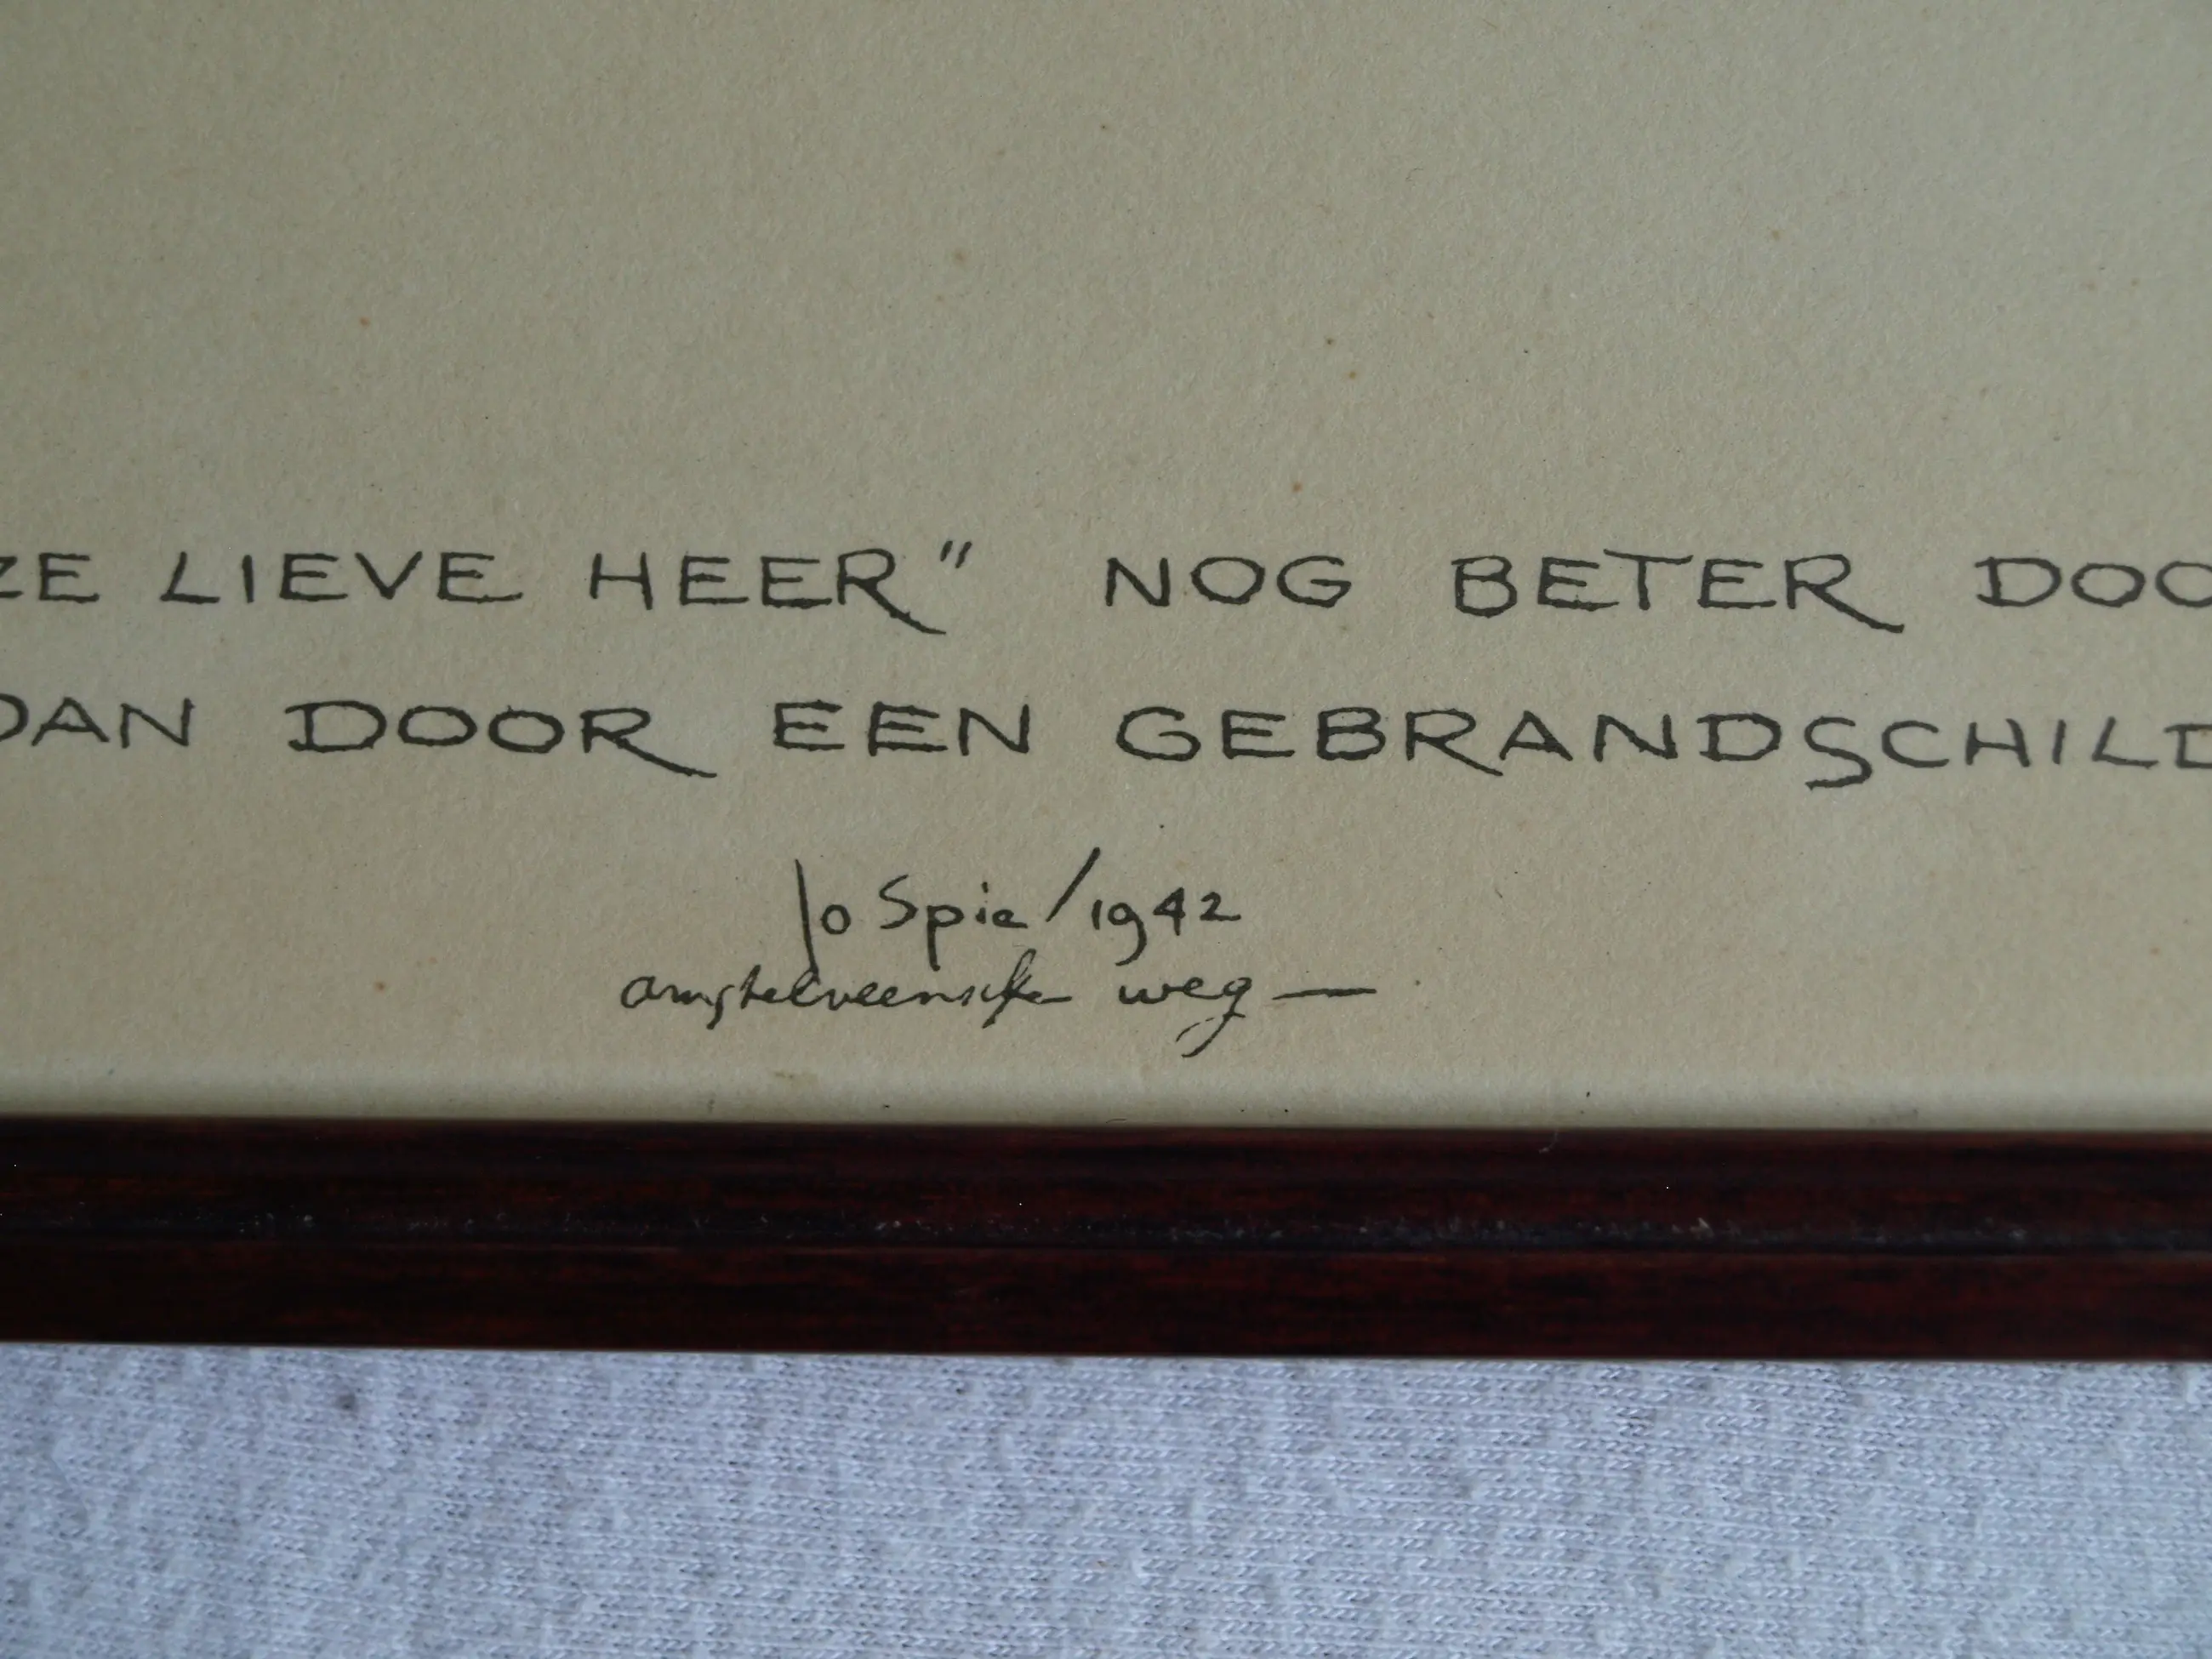 ZE LIEVE HEER" NOG BETER DOO
DAN DOOR EEN GEBRANDSCHILD
Jo Spie/1942
amstelveensche weg —